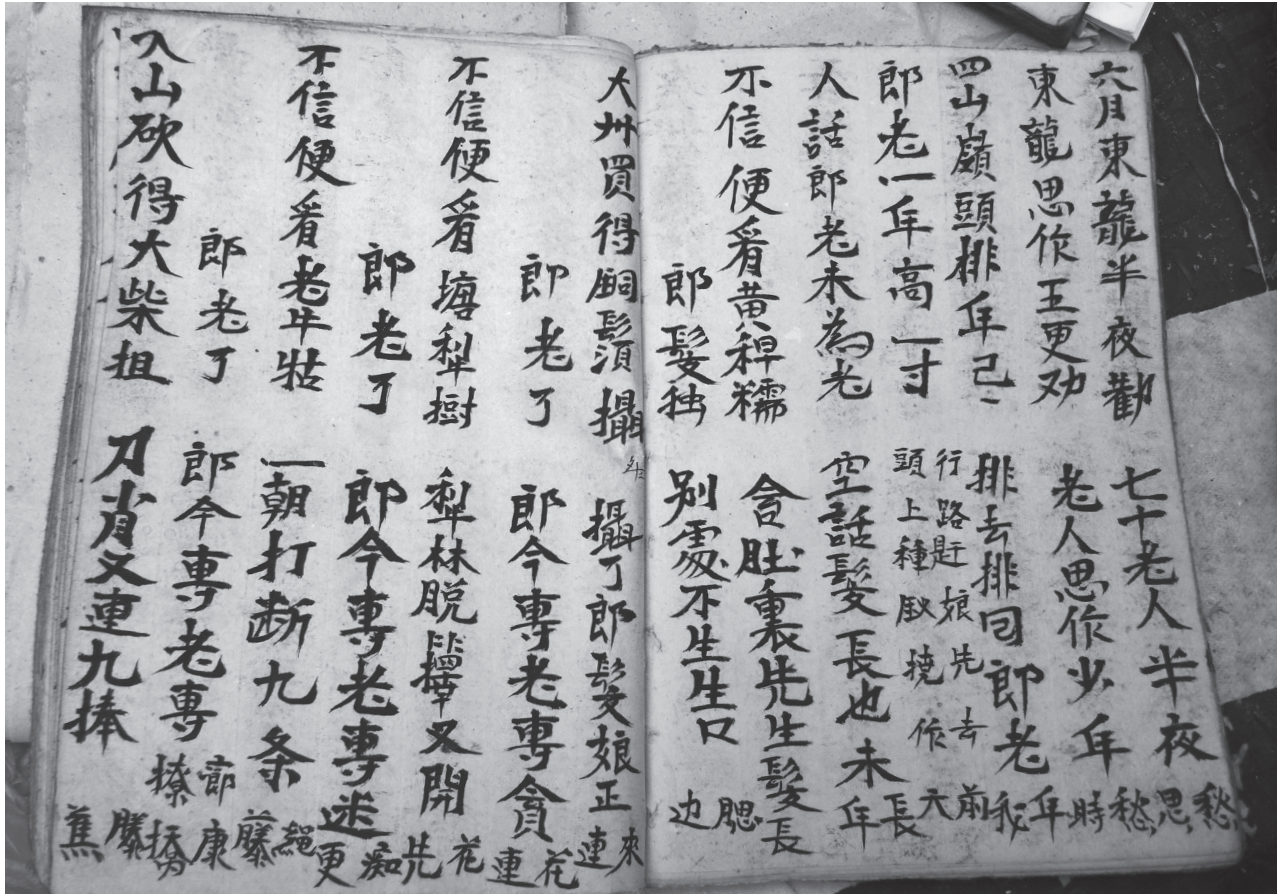 六月東龍半夜勸 七十老人半夜愁思
東龍思作五更劝 老人思作少年時愁
四山嶺頭排年己、 排去排回郎老年我
郎老一年高一寸 行路赶娘先去前
頭上種 撓作六
人話郎老未為老 空話髮長也未長年
不信便看黄稈糯 含肚裏先生髮長
郎髮独 别處不生生口腮边
大州買得銅鬚攝 攝了郎髮娘正來連
郎老了 郎今專老專貪花連
不信便看塘犁樹 犁林脱又開花先
郎老了 郎今專老專迷痴更
不信便看老牛牯 一朝打断九条繩藤
郎老了 郎今專老專撩
入山砍得大柴担 刀肖又連九捧藤蕉